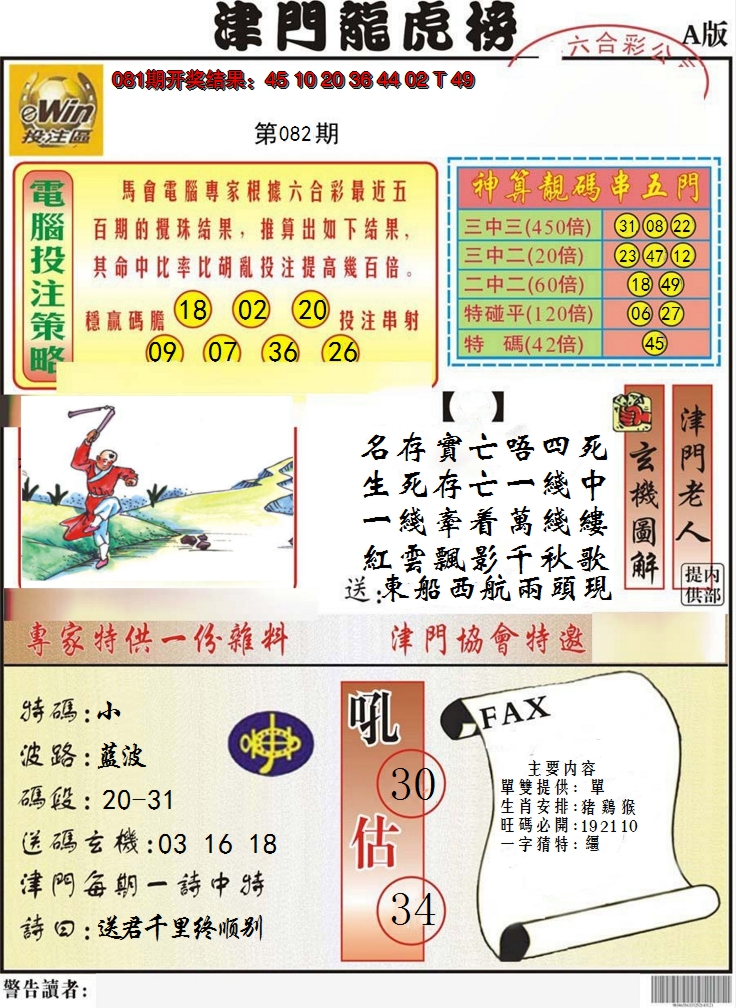 津門龍虎榜
A版
六合彩公
081期开奖结果：45 10 20 36 44 02 T 49
eWin
投注區
第082期
電腦投注策略
馬會電腦專家根據六合彩最近五
百期的攪珠结果，推算出如下结果，
其命中比率比胡亂投注提高幾百倍。
穩贏碼膽 18 02 20 投注串射
09 07 36 26
神算靚碼串五門
三中三(450倍) 31 08 22
三中二(20倍) 23 47 12
二中二(60倍) 18 49
特碰平(120倍) 06 27
特 碼(42倍) 45
【 】
名存實亡唔四死
生死存亡一綫中
一綫牽着萬綫縷
紅雲飄影千秋歌
送:東船西航兩頭現
玄機圖解
津門老人
内部提供
專家特供一份雜料
津門協會特邀
特碼:小
波路:藍波
碼段:20-31
送碼玄機:03 16 18
津門每期一詩中特
詩曰:送君千里终顺别
吼
30
估
34
FAX
主要内容
單雙提供：單
生肖安排:猪鷄猴
旺碼必開:192110
一字猜特:
警告讀者: